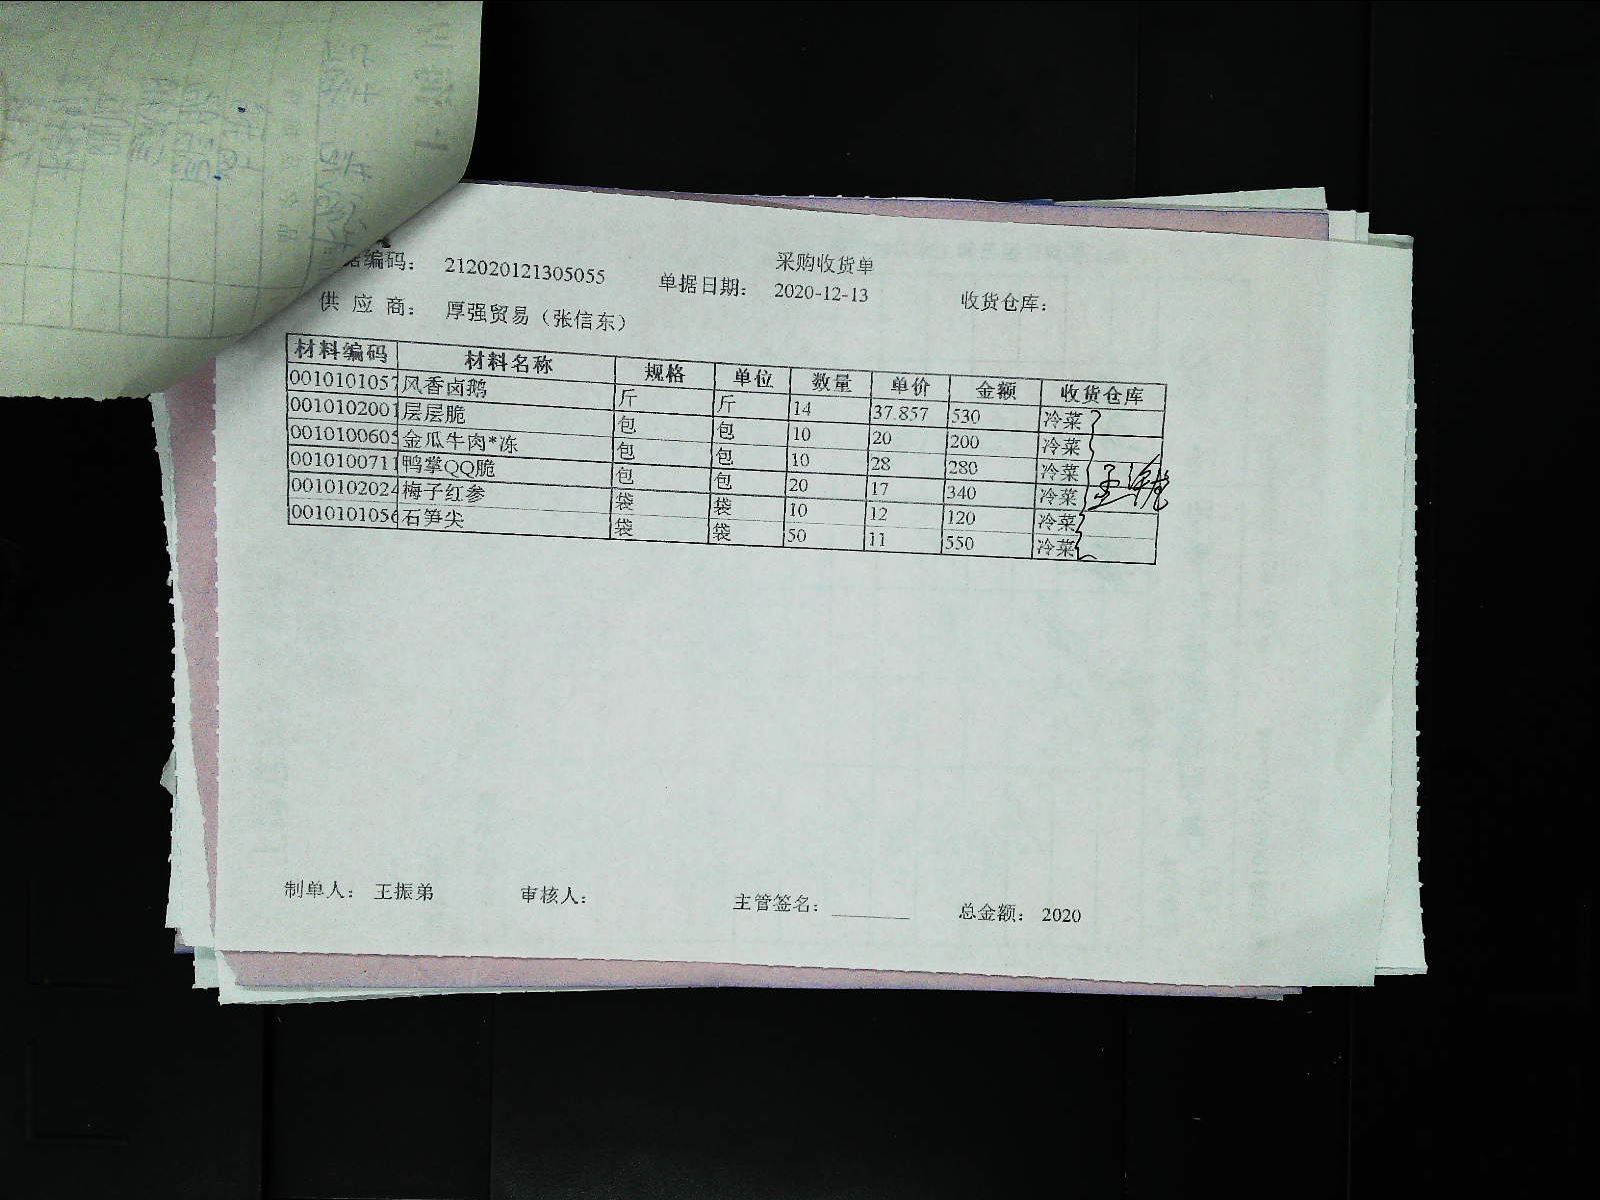 采购收货单
据编码： 212020121305055 单据日期： 2020-12-13 收货仓库：
供 应 商： 厚强贸易（张信东）
材料编码 材料名称 规格 单位 数量 单价 金额 收货仓库
0010101057 风香卤鹅 斤 斤 14 37.857 530 冷菜
0010102001 层层脆 包 包 10 20 200 冷菜
0010100605 金瓜牛肉*冻 包 包 10 28 280 冷菜
0010100711 鸭掌QQ脆 包 包 20 17 340 冷菜
0010102024 梅子红参 袋 袋 10 12 120 冷菜
0010101056 石笋尖 袋 袋 50 11 550 冷菜
制单人： 王振弟 审核人： 主管签名： 总金额： 2020